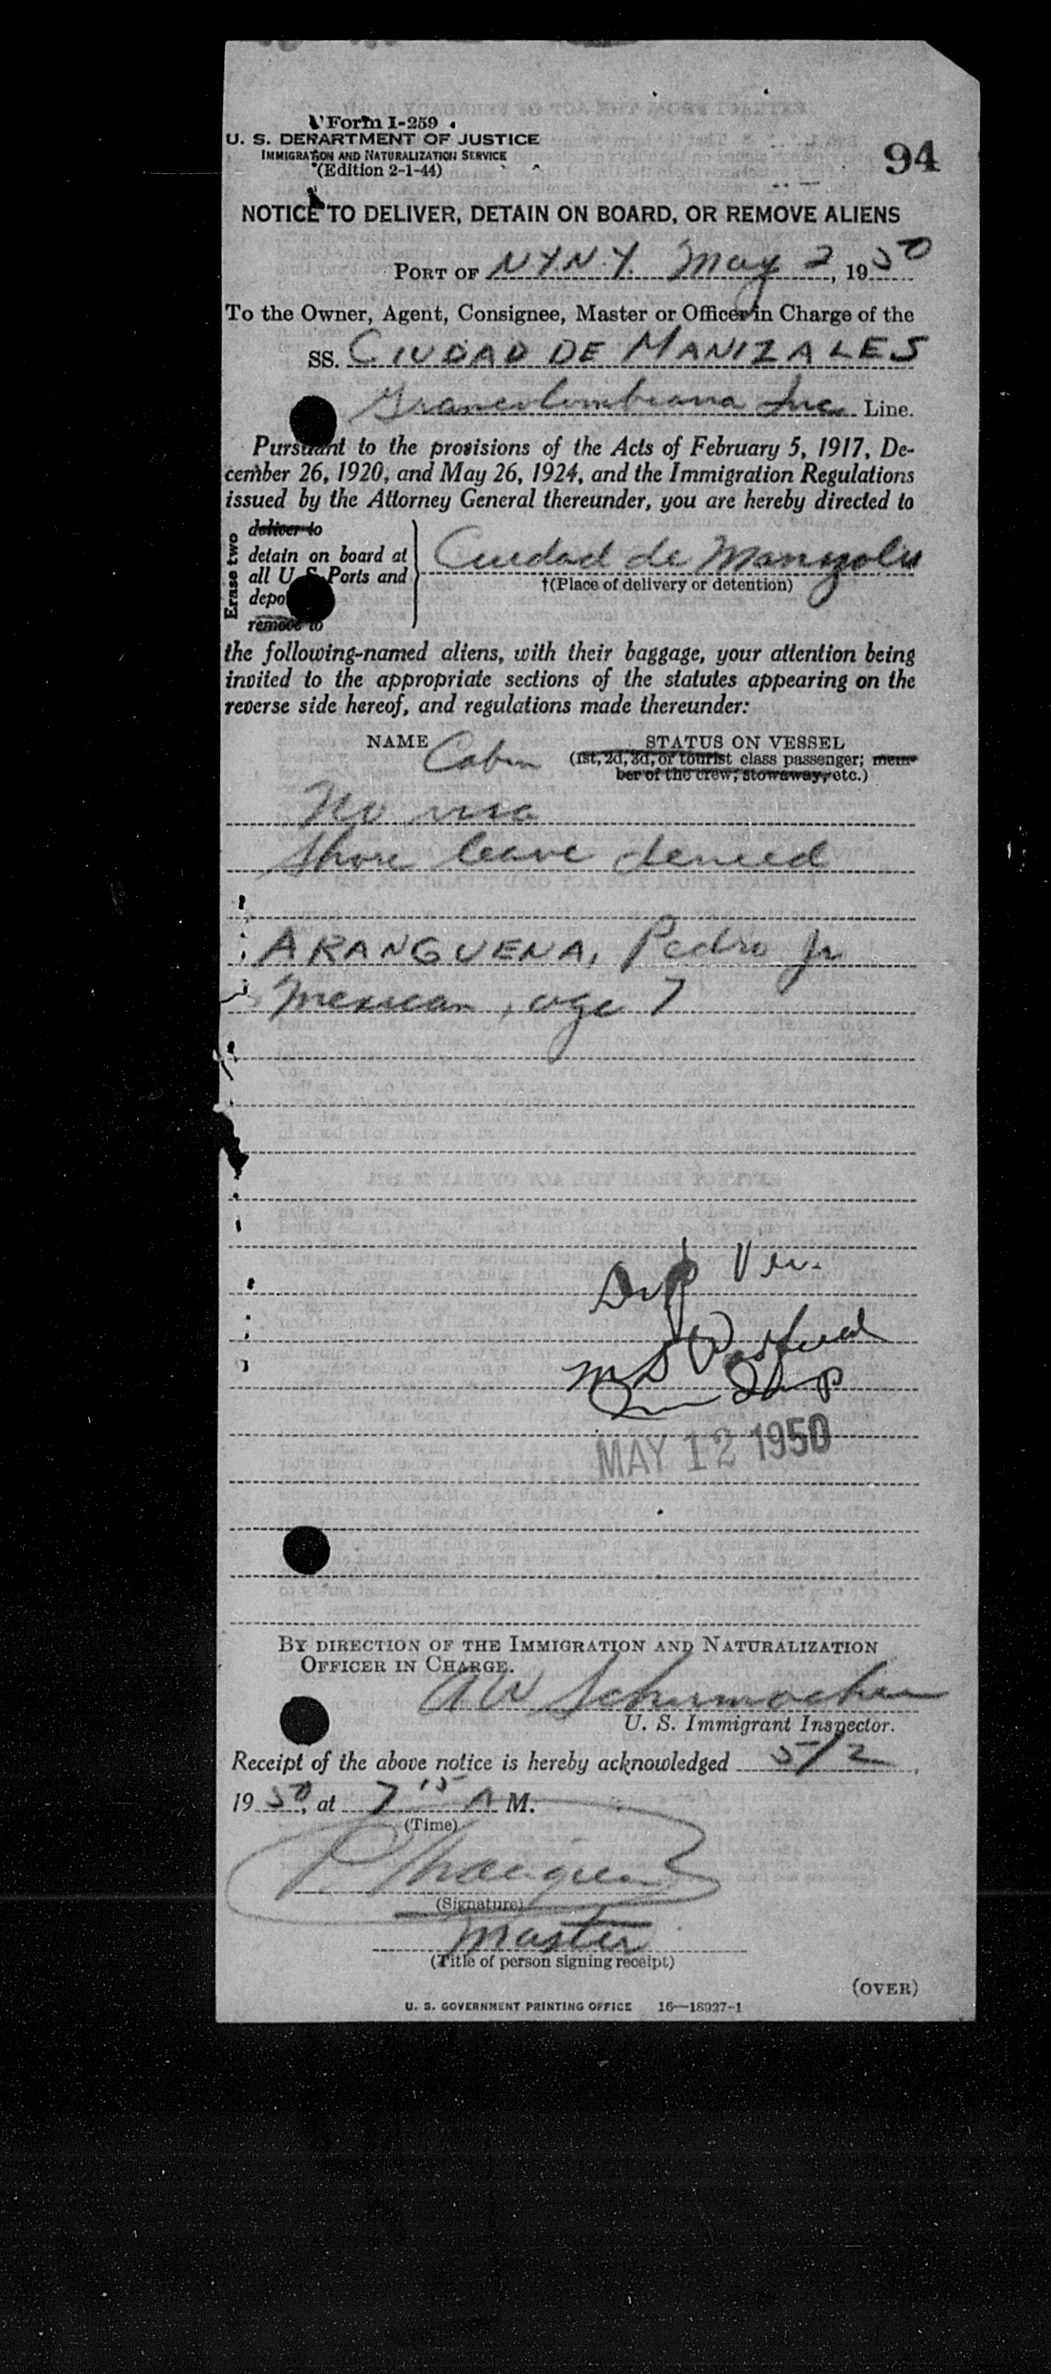 Form I-259
U. S. DEPARTMENT OF JUSTICE
IMMIGRATION AND NATURALIZATION SERVICE
(Edition 2-1-44)
94
NOTICE TO DELIVER, DETAIN ON BOARD, OR REMOVE ALIENS
PORT OF N.Y.N.Y. May 2, 1950
To the Owner, Agent, Consignee, Master or Officer in Charge of the
SS. CIUDAD DE MANIZALES
Grancolombiana Inc. Line.
Pursuant to the provisions of the Acts of February 5, 1917, De-
cember 26, 1920, and May 26, 1924, and the Immigration Regulations
issued by the Attorney General thereunder, you are hereby directed to
Erase two
deliver to
detain on board at
all U. S. Ports and
depo
remove to
Ciudad de Manizales
†(Place of delivery or detention)
the following-named aliens, with their baggage, your attention being
invited to the appropriate sections of the statutes appearing on the
reverse side hereof, and regulations made thereunder:
NAME Cabin STATUS ON VESSEL
(1st, 2d, 3d, or tourist class passenger; mem-
ber of the crew; stowaway, etc.)
No visa
Shore leave denied
ARANGUENA, Pedro Jr
Mexican, age 7
MAY 12 1950
BY DIRECTION OF THE IMMIGRATION AND NATURALIZATION
OFFICER IN CHARGE.
A W Schumacher
U. S. Immigrant Inspector.
Receipt of the above notice is hereby acknowledged 5/2,
1950, at 7 15 A M.
(Time)
(Signature)
Master
(Title of person signing receipt)
(OVER)
U. S. GOVERNMENT PRINTING OFFICE 16—18927-1